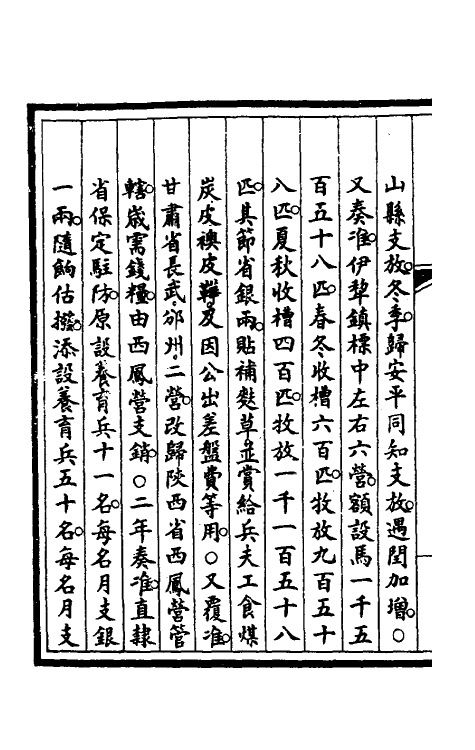 山縣支放。冬季歸安平同知支放。遇閏加增。○
又奏准。伊犂鎮標中左右六營。額設馬一千五
百五十八匹。春冬收槽六百匹。牧放九百五十
八匹。夏秋收槽四百匹。牧放一千一百五十八
匹。其節省銀兩。貼補麩草。並賞給兵夫工食煤
炭皮襖皮鞾。及因公出差盤費等用。○又覆准。
甘肅省長武、邠州、二營。改歸陝西省西鳳營管
轄。歲需錢糧。由西鳳營支銷。○二年奏准。直隸
省保定駐防。原設養育兵十一名。每名月支銀
一兩。隨餉估撥。添設養育兵五十名。每名月支